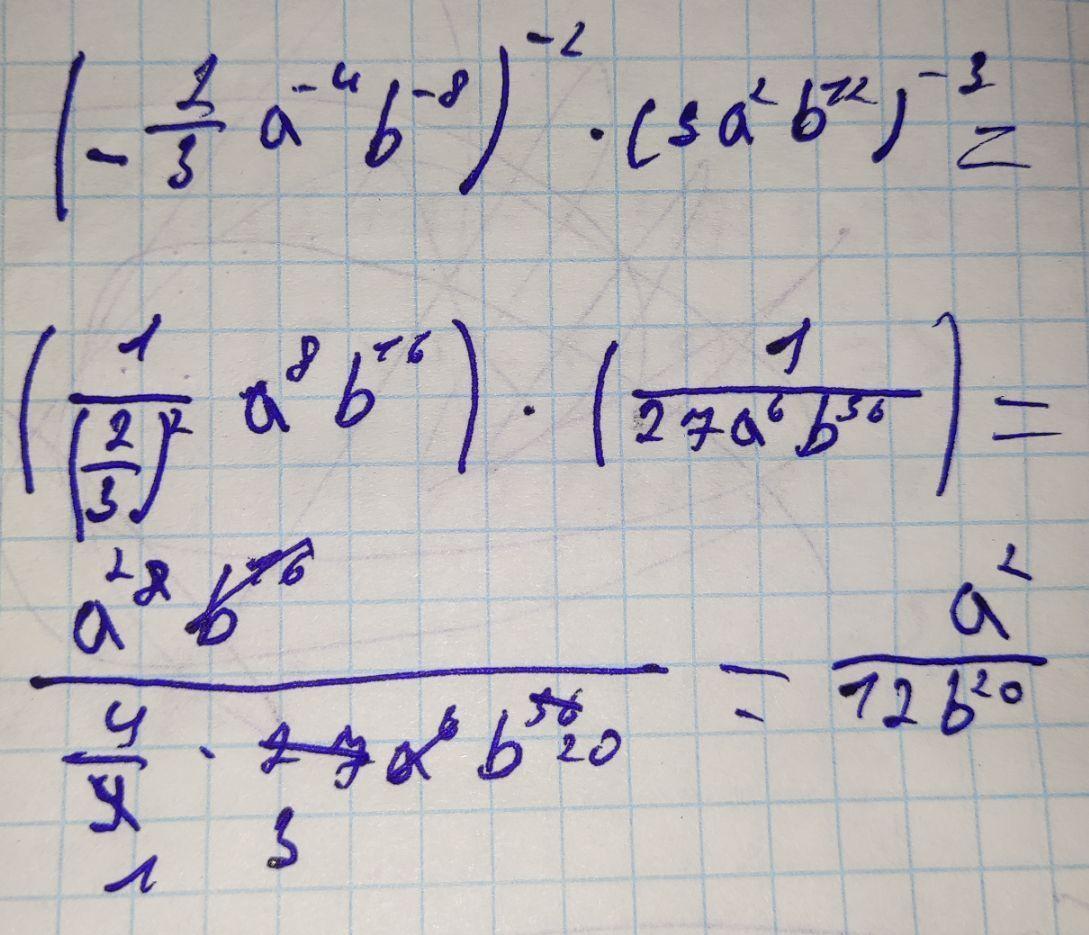 (-2/3 a⁻⁴ b⁻⁸)⁻² · (3a² b¹²)⁻³ =
(1/(2/3)² a⁸ b¹⁶) · (1/27a⁶ b³⁶) =
a² ⁸ b¹⁶ / 4/9 · 27 a⁶ b³⁶ 20 = a²/12b²⁰
1 3